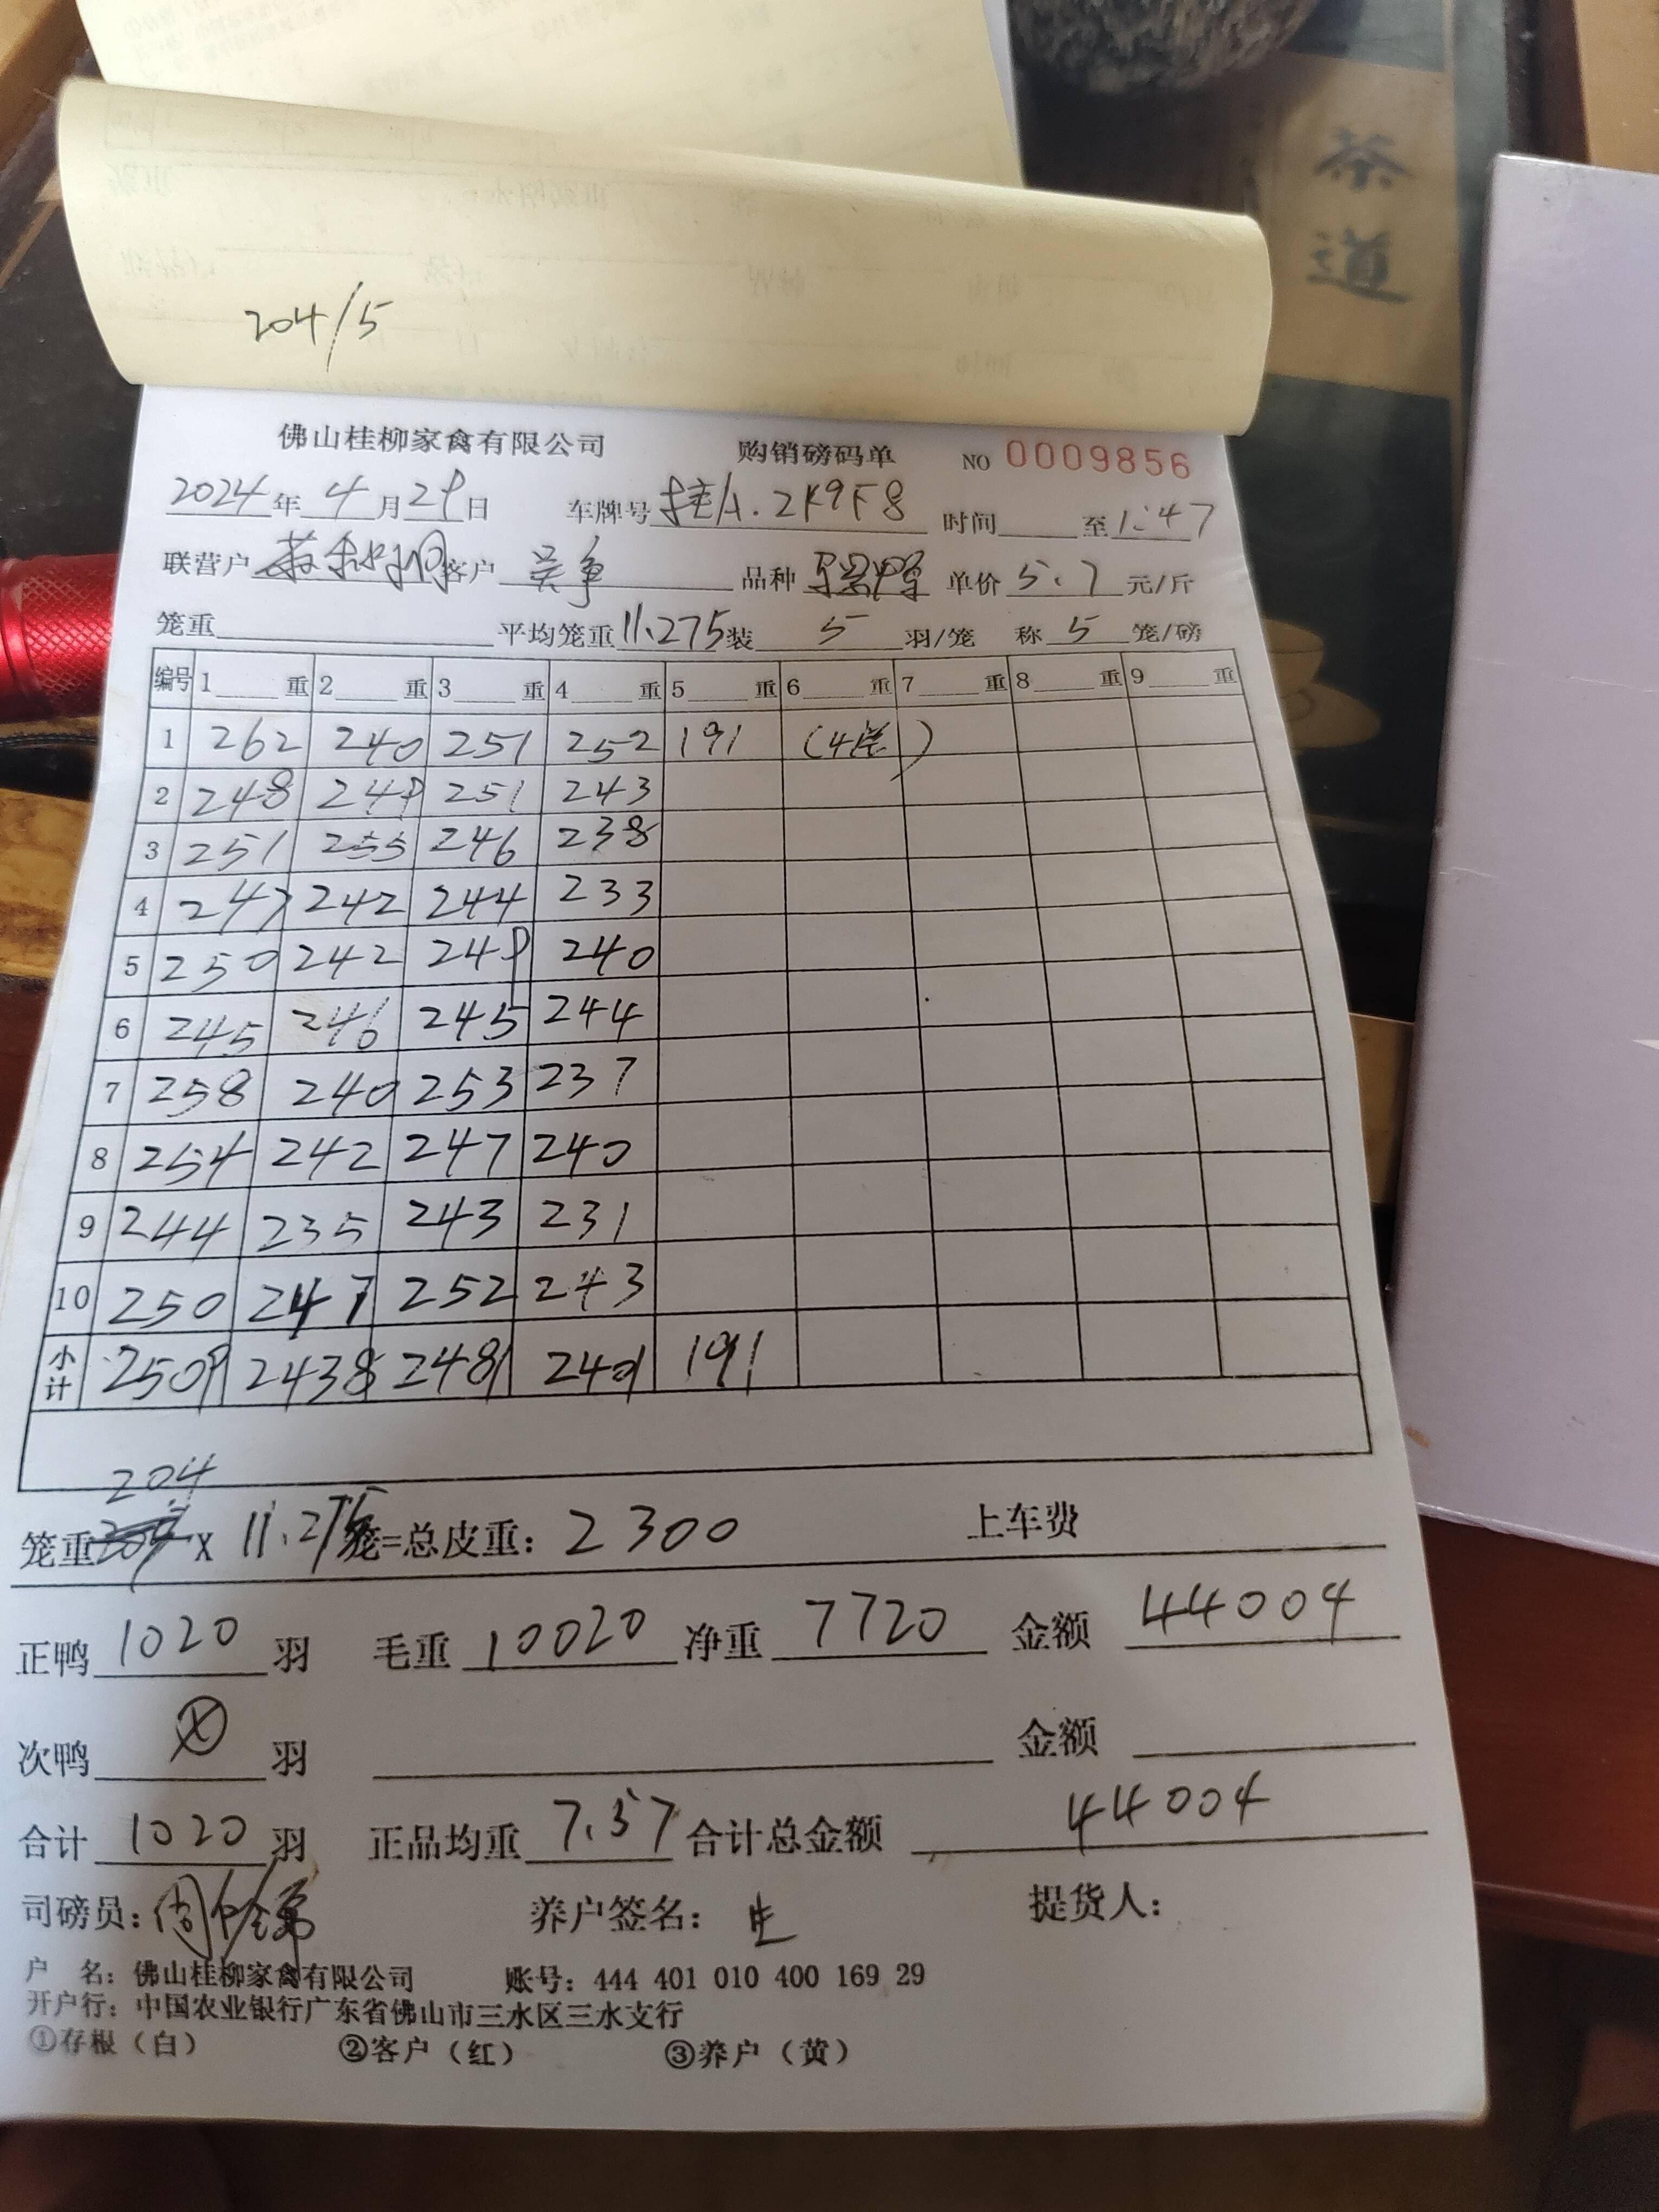 茶道
204/5
佛山桂柳家禽有限公司 购销磅码单 NO 0009856
2024年4月29日 车牌号桂A.2K9F8 时间 至1:47
联营户 客户 吴争 品种 单价5.7元/斤
笼重 平均笼重11.275装5羽/笼 称5笼/磅
编号 1 重 2 重 3 重 4 重 5 重 6 重 7 重 8 重 9 重
1 262 240 251 252 191 (4笼)
2 248 249 251 243
3 251 255 246 238
4 247 242 244 233
5 250 242 249 240
6 245 246 245 244
7 258 240 253 237
8 254 242 247 240
9 244 235 243 231
10 250 247 252 243
小计 2509 2438 2481 2401 191
204
笼重 X 11.275笼=总皮重: 2300 上车费
正鸭1020羽 毛重10020净重7720 金额44004
次鸭 羽 金额
合计1020羽 正品均重7.57合计总金额44004
司磅员: 养户签名: 提货人:
户 名: 佛山桂柳家禽有限公司 账号: 444 401 010 400 169 29
开户行: 中国农业银行广东省佛山市三水区三水支行
①存根(白) ②客户(红) ③养户(黄)